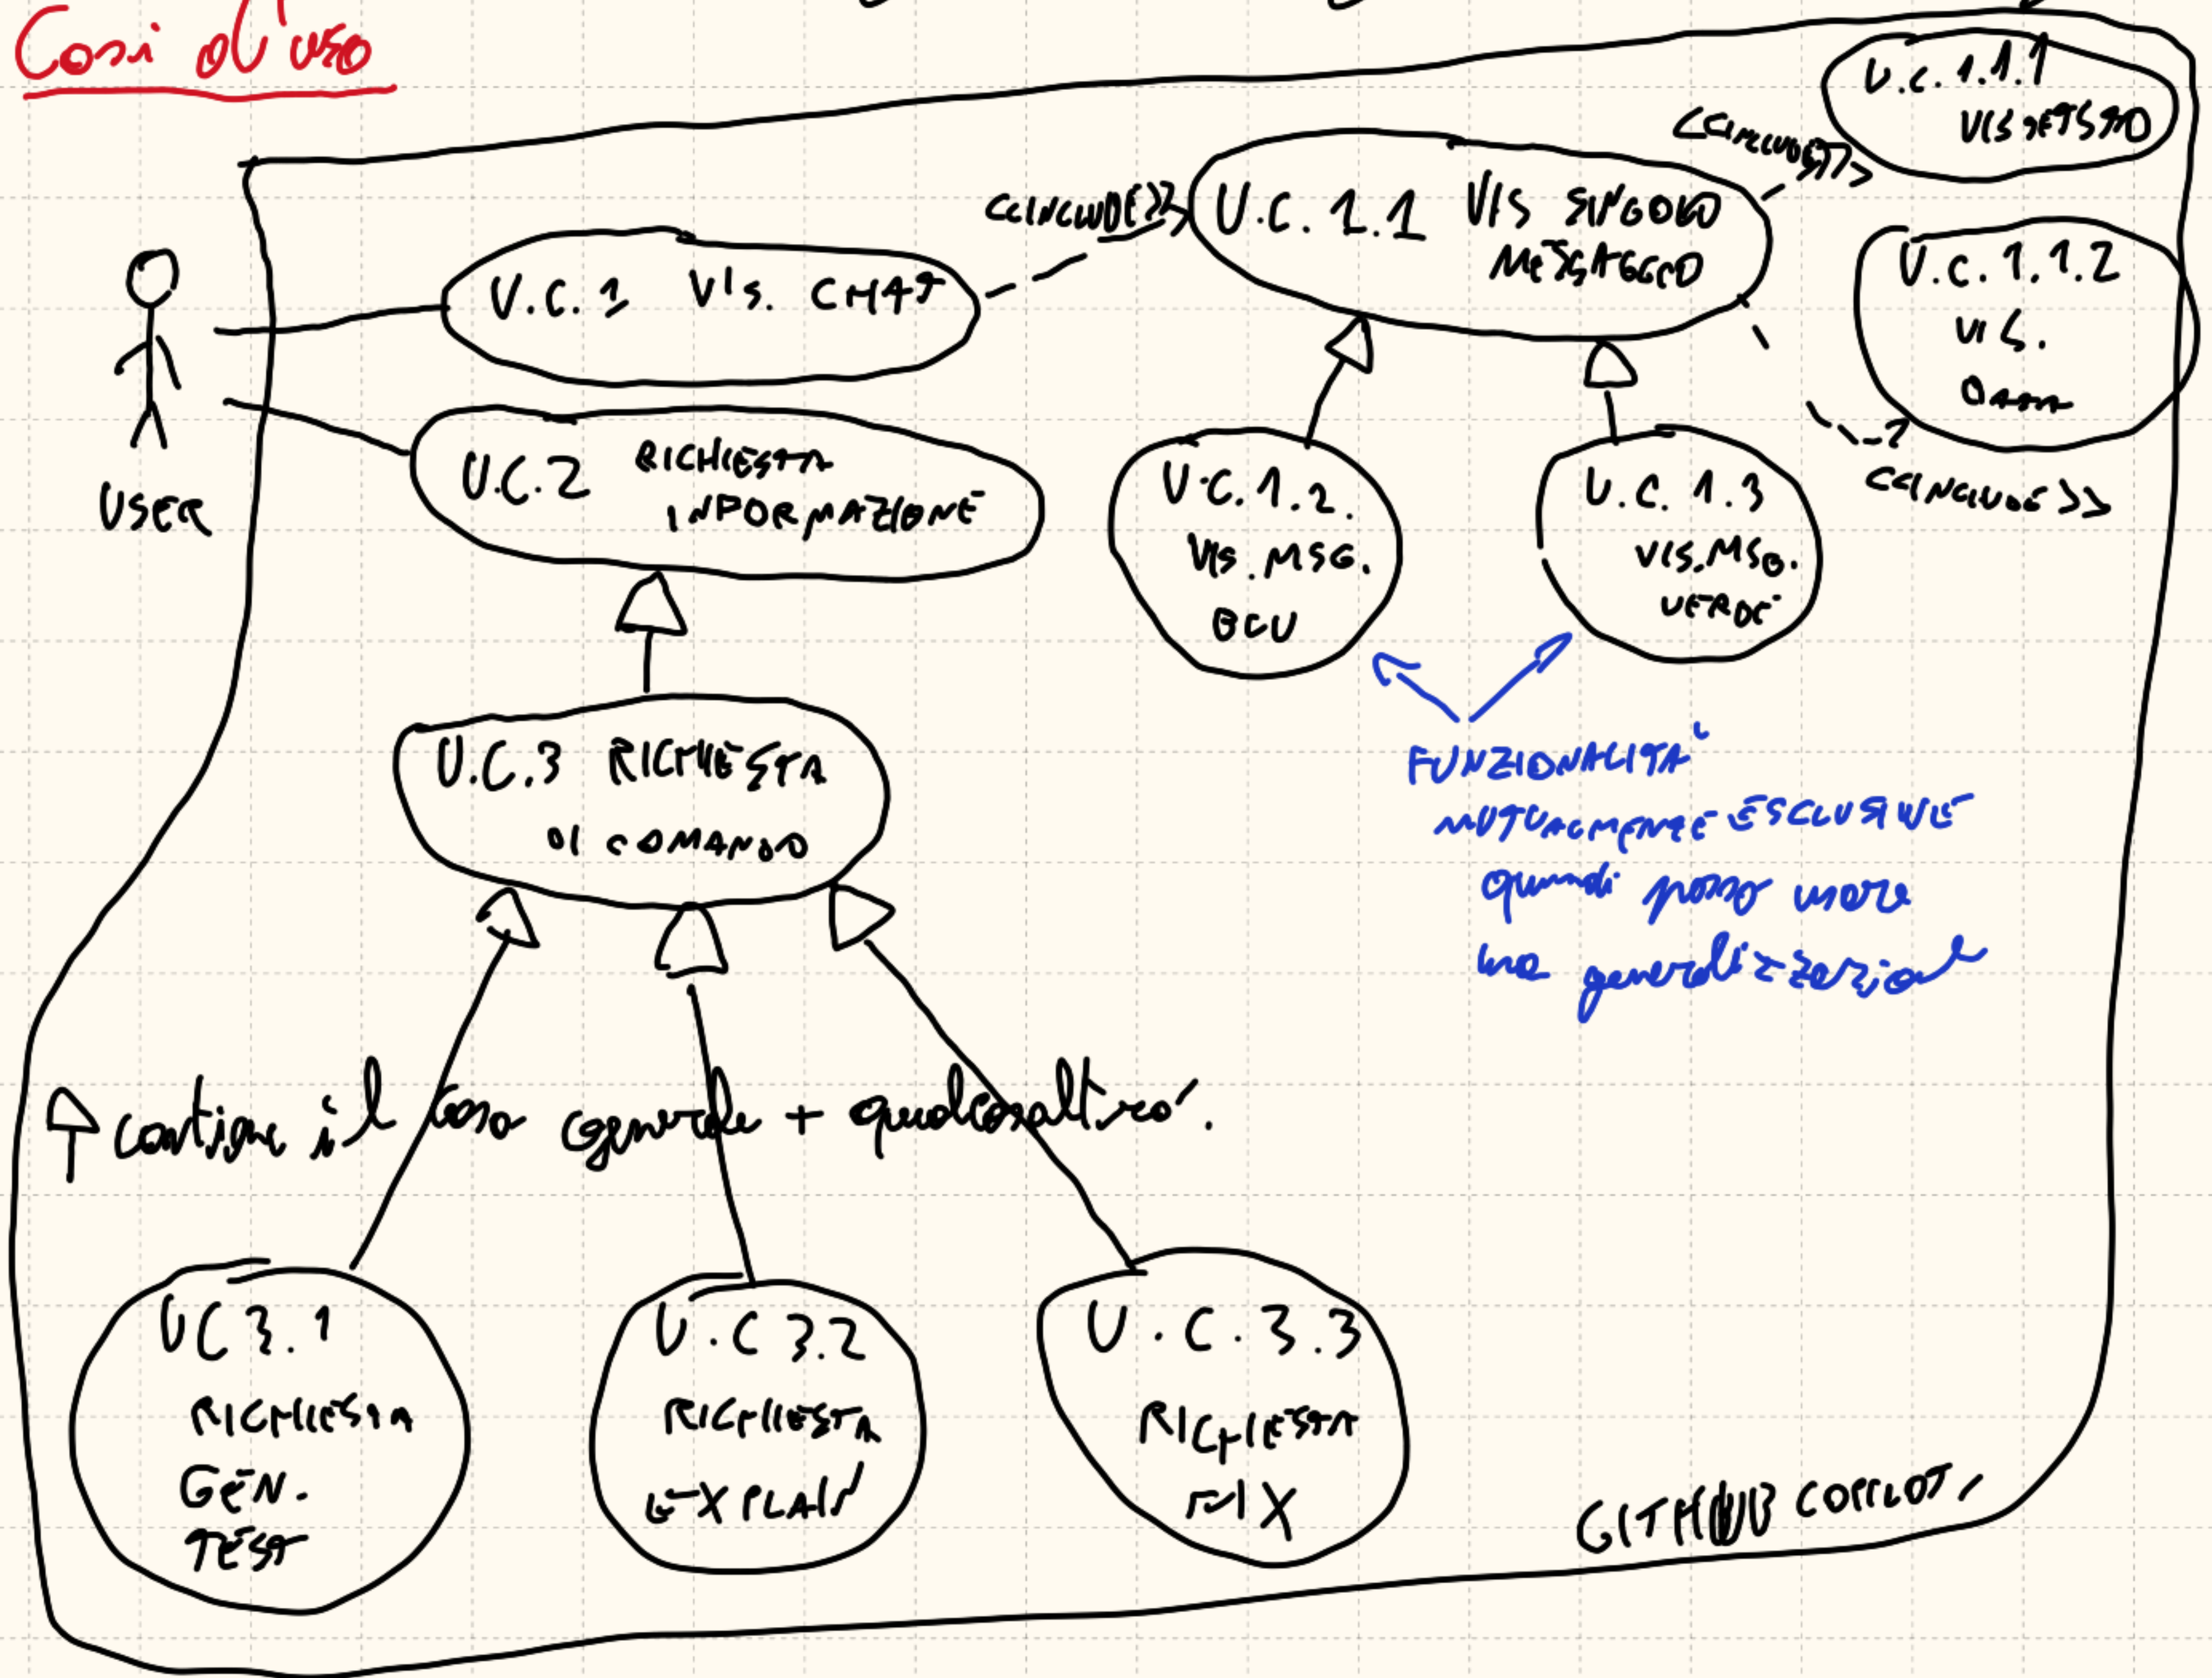 Casi d'uso
U.C. 1.1.1
VIS TESTO
<<INCLUDE>>
<<INCLUDE>>
U.C. 1.1 VIS SINGOLO
MESSAGGIO
U.C. 1.1.2
VIS.
DATA
<<INCLUDE>>
U.C. 1 VIS. CHAT
USER
U.C. 2 RICHIESTA
INFORMAZIONE
U.C. 1.2.
VIS. MSG.
BLU
U.C. 1.3
VIS. MSG.
VERDE
FUNZIONALITA'
MUTUALMENTE ESCLUSIVE
quindi posso usare
una generalizzazione
U.C. 3 RICHIESTA
DI COMANDO
contiene il caso generale + qualcosaltro.
UC 3.1
RICHIESTA
GEN.
TEST
U.C 3.2
RICHIESTA
EXPLAIN
U.C. 3.3
RICHIESTA
FIX
GITHUB COPILOT